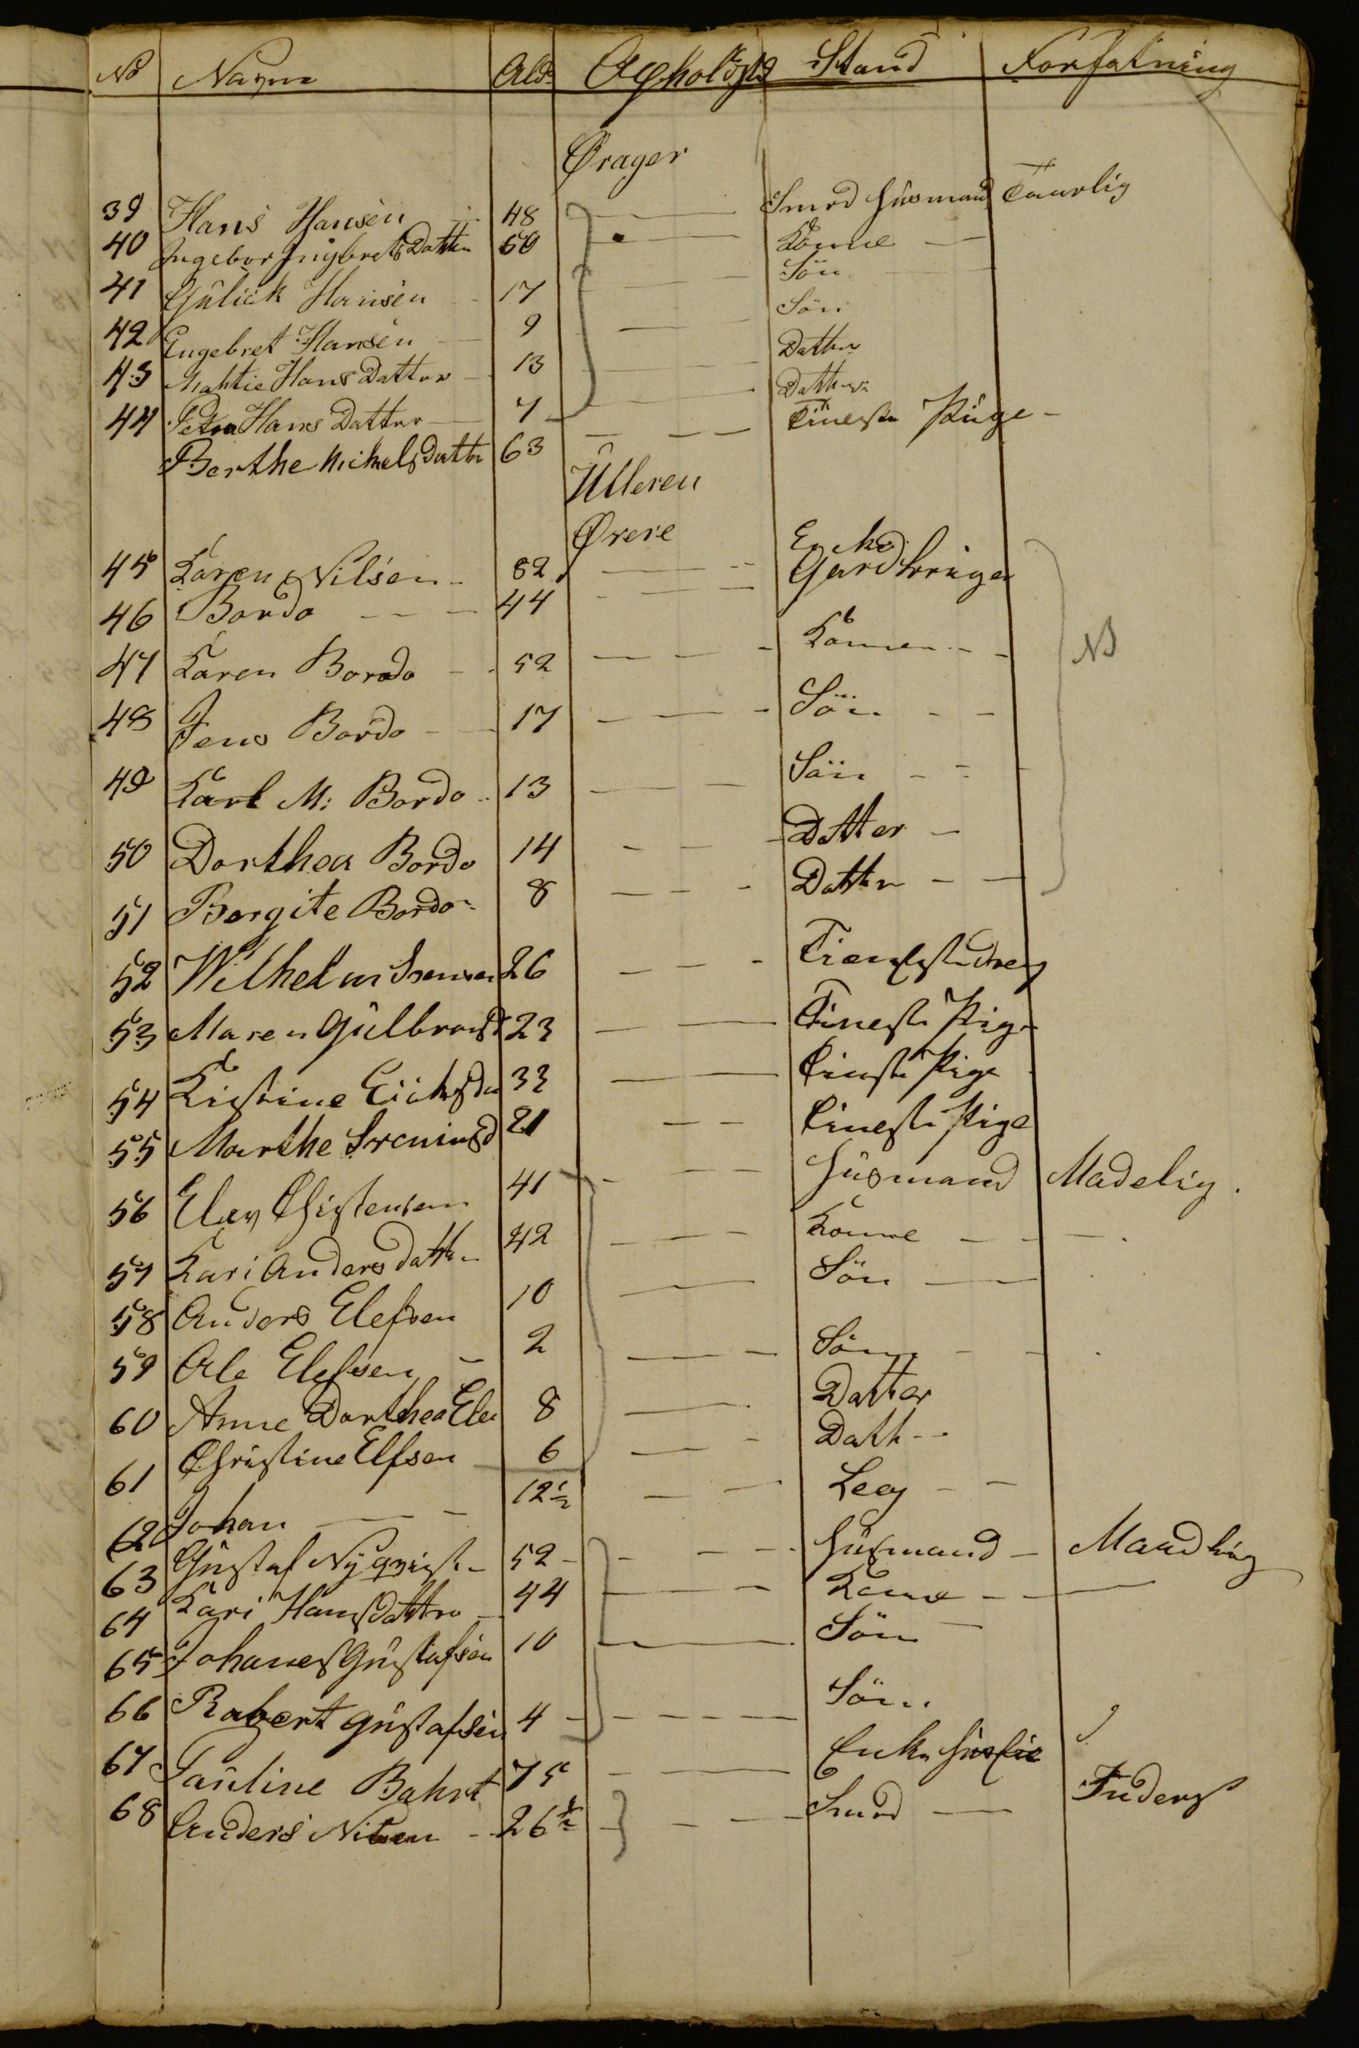 No Navne Ald: Opholdstd Stand Forfatning
Ørager
39 Hans Hansen 48 Smed Husmand Taarlig
40 Ingebor Ingbrets Datter 50 Konne
41 Gulick Hansen 17 Søn
42 Engebret Hansen 9 Søn
43 Mahtie Hans Datter 13 Datter
44 Petra Hans Datter 7 Datter
Berthe Mikelsdatter 63 Tineste Piige
Ulleren
Øvere
45 Karen Nilsen 82 Enke
46 Bordo 44 Gardbruger
47 Karen Bordo 52 Konnen
NB
48 Jens Bordo 17 Søn
49 Karl M: Bordo 13 Søn
50 Dorthea Bordo 14 Datter
51 Borgite Bordo 8 Datter
52 Wilhelm Svensen 26 Tienestedreng
53 Maren Gulbransd 23 Tineste Pige
54 Kistine Eriksda 33 Tineste Pige
55 Marthe Sveninsd 21 Tineste Pige
56 Elev Christensen 41 Husmand Madelig.
57 Kari Anders datter 42 Konne
58 Anders Elefsen 10 Søn
59 Ole Elefsen 2 Søn
60 Anne Dorthea Ele 8 Datter
61 Christine Elfsen 6 Datt
62 Johan 12½ Leg
63 Gustaf Nyqvist 52 Husmand Maadlig
64 Kari Hansdatter 44 Kone
65 Johanes Gustafsen 10 Søn
66 Robert Gustafsen 4 Søn
67 Pauline Bahrt 75 Enke
68 Anders Nilsen 26½ Smed Inderst